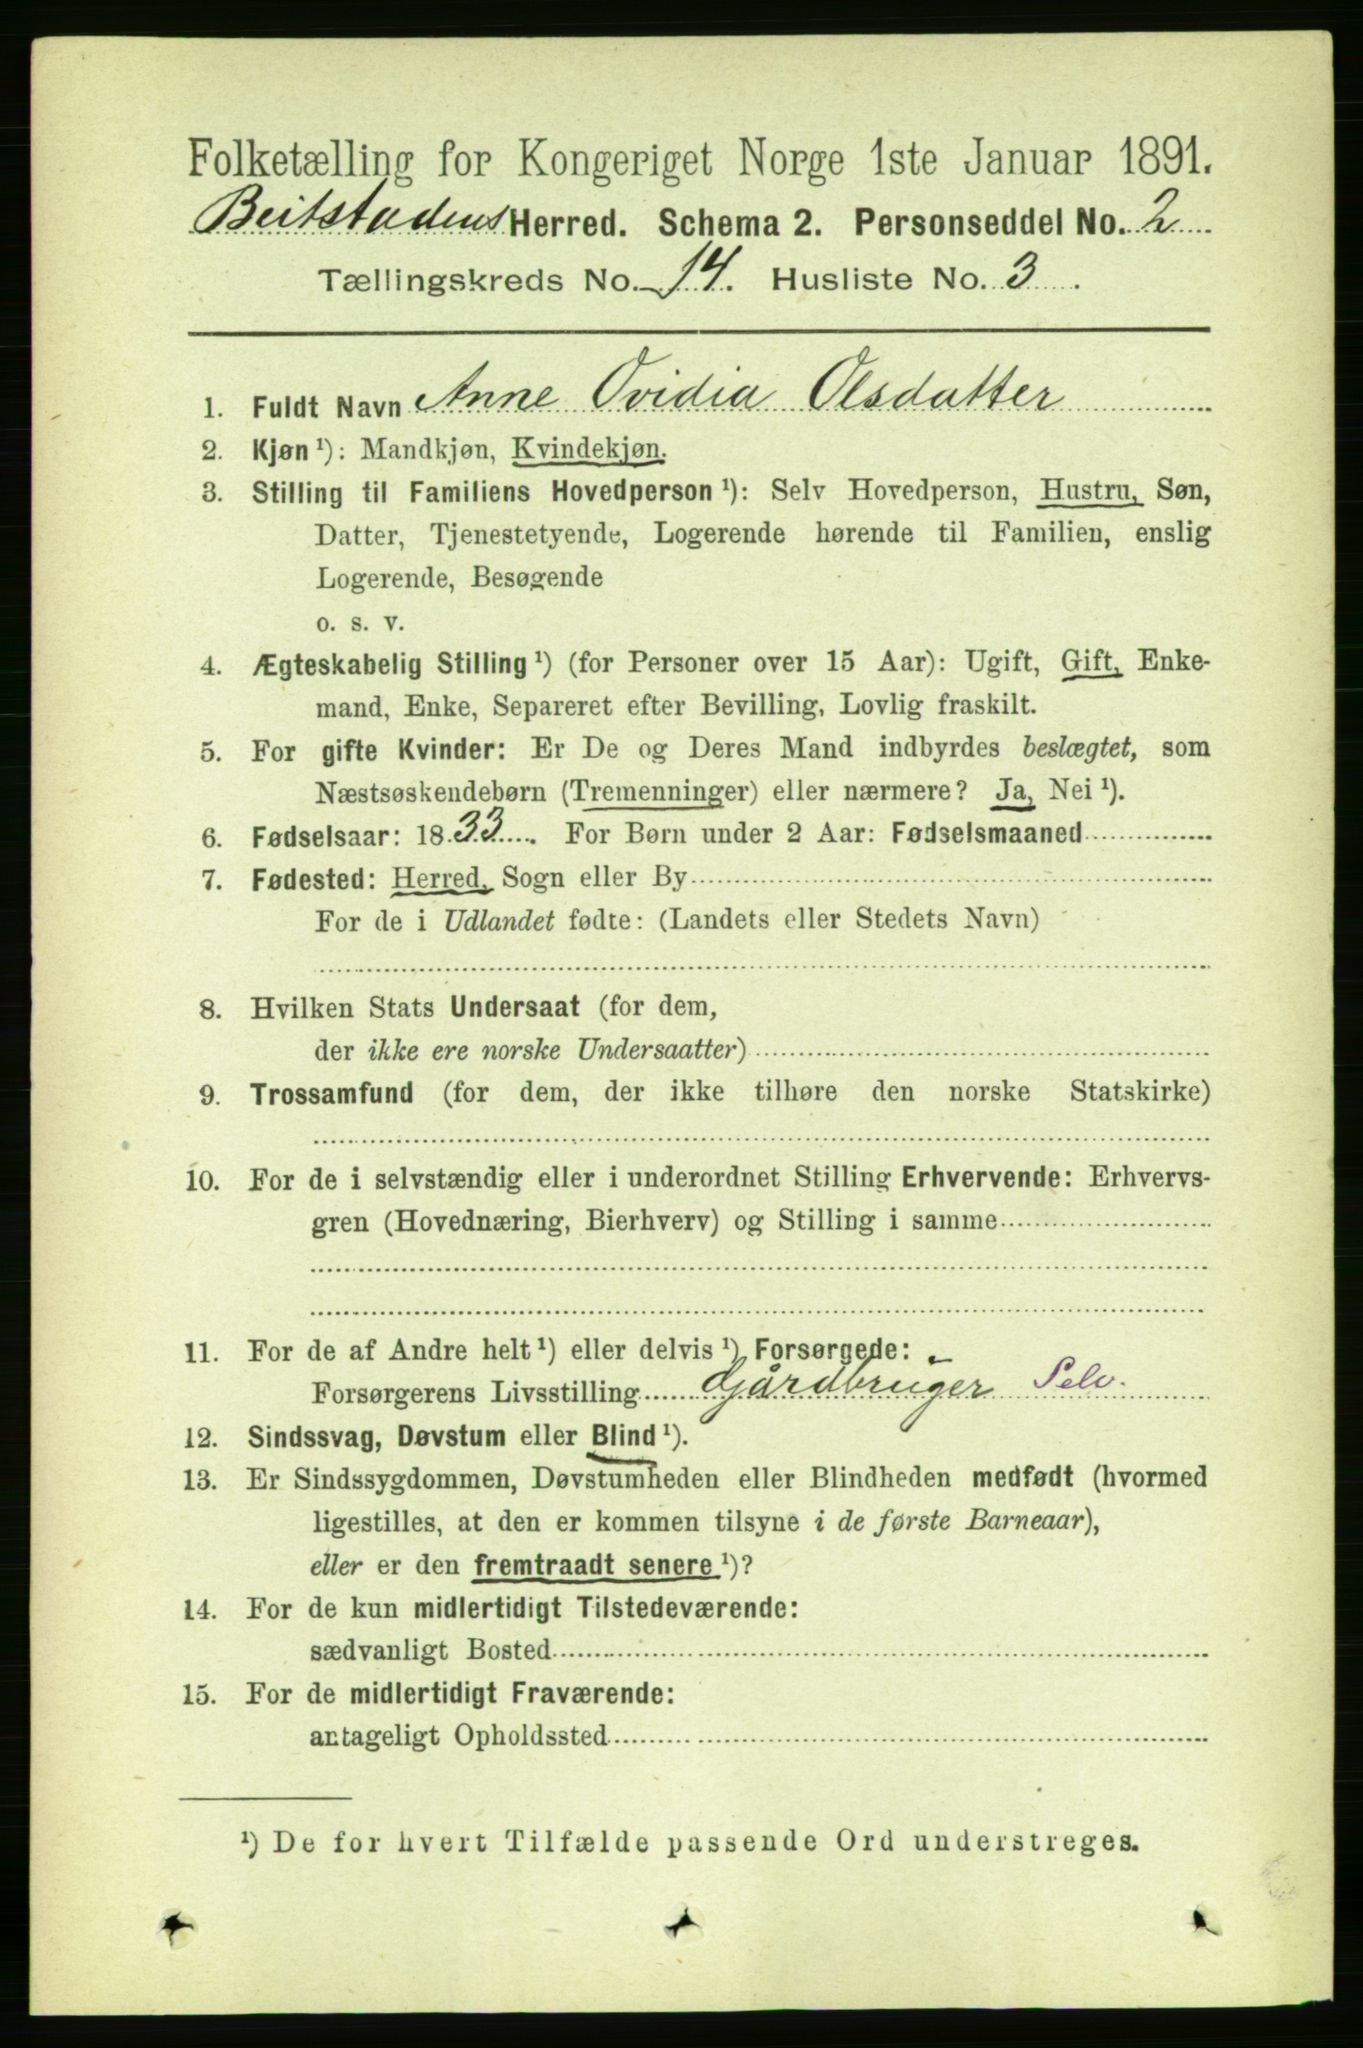 Folketælling for Kongeriget Norge 1ste Januar 1891.
Beitstadens Herred. Schema 2. Personseddel No. 2
Tællingskreds No. 14. Husliste No. 3.
1. Fuldt Navn Anne Ovidia Olsdatter
2. Kjøn ¹): Mandkjøn, Kvindekjøn.
3. Stilling til Familiens Hovedperson ¹): Selv Hovedperson, Hustru, Søn,
Datter, Tjenestetyende, Logerende hørende til Familien, enslig
Logerende, Besøgende
o. s. v.
4. Ægteskabelig Stilling ¹) (for Personer over 15 Aar): Ugift, Gift, Enke-
mand, Enke, Separeret efter Bevilling, Lovlig fraskilt.
5. For gifte Kvinder: Er De og Deres Mand indbyrdes beslægtet, som
Næstsøskendebørn (Tremenninger) eller nærmere? Ja, Nei ¹).
6. Fødselsaar: 1833. For Børn under 2 Aar: Fødselsmaaned
7. Fødested: Herred, Sogn eller By
For de i Udlandet fødte: (Landets eller Stedets Navn)
8. Hvilken Stats Undersaat (for dem,
der ikke ere norske Undersaatter)
9. Trossamfund (for dem, der ikke tilhøre den norske Statskirke)
10. For de i selvstændig eller i underordnet Stilling Erhvervende: Erhvervs-
gren (Hovednæring, Bierhverv) og Stilling i samme
11. For de af Andre helt ¹) eller delvis ¹) Forsørgede:
Forsørgerens Livsstilling Gjårdbruger Selv.
12. Sindssvag, Døvstum eller Blind ¹).
13. Er Sindssygdommen, Døvstumheden eller Blindheden medfødt (hvormed
ligestilles, at den er kommen tilsyne i de første Barneaar),
eller er den fremtraadt senere ¹)?
14. For de kun midlertidigt Tilstedeværende:
sædvanligt Bosted
15. For de midlertidigt Fraværende:
antageligt Opholdssted
¹) De for hvert Tilfælde passende Ord understreges.